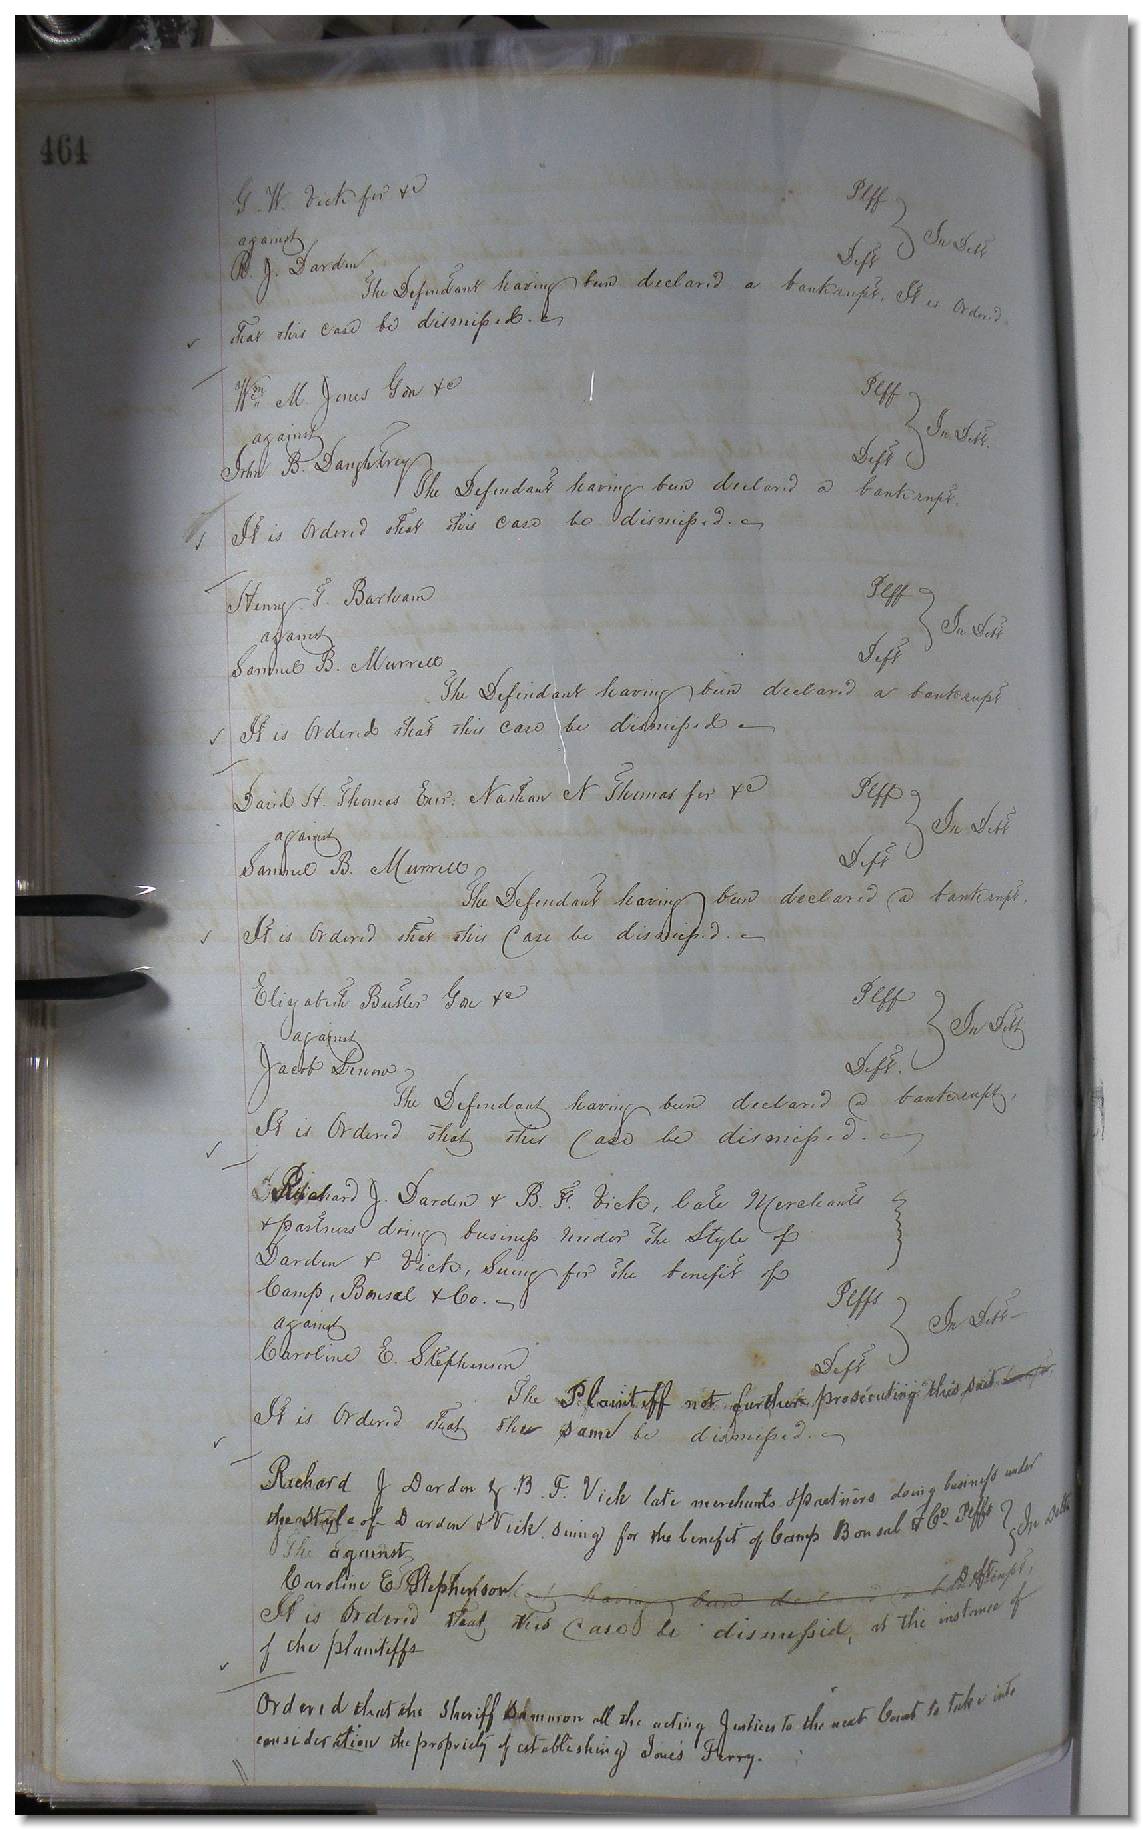 464
G. W. Vick for &c Plff
against In Debt
R. J. Darden Deft
The Defendant having been declared a bankrupt. It is Ordered
that this case be dismissed.
Wm. M. Jones Gdn &c Plff
against In Debt.
John B. Daughtrey Deft
The Defendant having been declared a bankrupt.
It is Ordered that this case be dismissed.
Henry T. Barham Plff
against In Debt
Samuel B. Murrell Deft
The Defendant having been declared a bankrupt
It is Ordered that this case be dismissed
David H. Thomas Exor. Nathan N Thomas for &c Plff
against In Debt
Samuel B. Murrell Deft
The Defendant having been declared a bankrupt.
It is Ordered that this Case be dismissed.
Elizabeth Butler &c Plff
against In Debt
Jacob Deft.
The Defendant having been declared a bankrupt.
It is Ordered that this Case be dismissed.
Richard J. Darden & B. F. Vick, late Merchants
& partners doing business under the Style of
Darden & Vick, Suing for the benefit of
Camp, Bonsal & Co. Plffs
against In Debt
Caroline E. Stephenson Deft
The Plaintiff not further prosecuting this suit
It is Ordered that the same be dismissed.
Richard J Darden & B. F. Vick late merchants & partners doing business under
the Style of Darden & Vick suing for the benefit of Camp Bonsal & Co. Plffs In Debt
The against
Caroline E Stephenson having been declared a bankrupt, Deft
It is Ordered that this Case be dismissed, at the instance of
of the plaintiffs
Ordered that the Sheriff Summon all the acting Justices to the next Court to take into
consideration the propriety of establishing Jones Ferry.